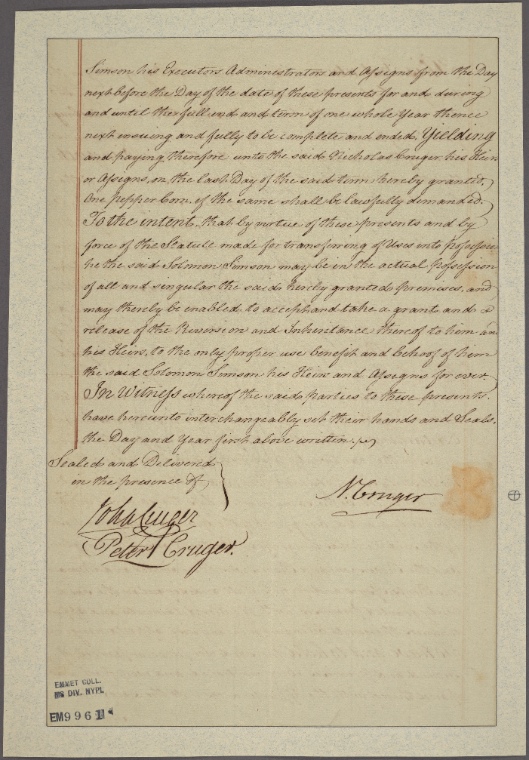 Simson his Executors Administrators and Assigns from the Day
next before the Day of the date of these presents for and during
and until the full end and term of one whole Year thence
next ensuing and fully to be complete and ended, Yielding
and paying therefore unto the said Nicholas Cruger his Heirs
or Assigns, on the last Day of the said term hereby granted,
One Pepper Corn, if the same shall be lawfully demanded.
To the intent, that by virtue of these presents and by
force of the Statute made for transfering of Uses into possession
he the said Solomon Simson may be in the actual possession
of all and singular the said hereby granted premises, and
may thereby be enabled to accept and take a grant and a
release of the Reversion and Inheritance thereof to him an
his Heirs, to the only proper use benefit and behoof of him
the said Solomon Simson his Heirs and Assigns for ever.
In Witness whereof the said parties to these presents,
have hereunto interchangeably set their hands and Seals,
the Day and Year first above written.
Sealed and Delivered
in the presence of
N. Cruger
John Cruger
Peter Cruger.
EMMET COLL.
MS DIV. NYPL
EM9961